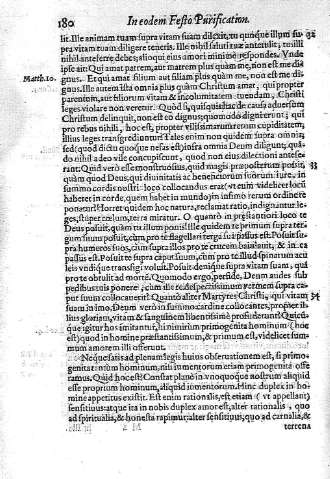 180 In eodem Festo Purificationis.
lit. Ille animam tuam supra vitam suam dilexit, tu quoque illum su 32
pra vitam tuam diligere teneris. Ille nihil saluti tuæ antetulit, tu illi
nihil anteferre debes; alioqui eius amori minime respondes. Vnde
ipse ait: Qui amat patrem, aut matrem plus quàm me, non est me di
Matth. 10. gnus. Et qui amat filium aut filiam plus quàm me, non est me di-
gnus. Ille autem ista omnia plus quàm Christum amat, qui propter
parentum, aut filiorum vitam & incolumitatem tuendam, Christi
leges violare non veretur. Quòd si, qui quilibet de causa aduersùm
Christum delinquit, non est eo dignus; quomodo digni erunt, qui
pro rebus nihili, hoc est, propter vilissimarum rerum cupiditatem,
illius leges transgrediuntur? Tales enim non quidem supra omnia,
sed (quod dictu quoque nefas est) infra omnia Deum diligunt; quan
do nihil adeo vile concupiscunt, quod non eius dilectioni antefe-
rant. Quid verò esse monstrosius, quid magis præposterum potest, 33
quàm quod Deus, qui diuinitatis ac beneficiorum suorum iure, in
summo cordis nostri loco collocandus erat, (vt eum videlicet locum
haberet in corde, quem habet in mundo) in infimo rerum ordine
ponatur? Horret quidem hoc natura, reclamat ratio, indignantur le-
ges, stupet cœlum, terra miratur. O quantò in præstantiori loco te
Deus posuit, quàm tu illum ponis! Ille quidem te primùm supra ter-
gum suum posuit, cùm pro te flagellari terga sua passus est. Posuit su
pra humeros suos, cùm supra illos pro te crucem baiulauit, & in ea
passus est. Posuit te supra caput suum, cùm pro te illud spinarum acu
leis vndique transfigi voluit. Posuit denique supra vitam suam, quā
pro te obtulit ad mortē. Quomodo ergo, perfide, Deum audes sub
pedibus tuis ponere, cùm ille te despectissimum vermem supra ca-
put suum collocauerit? Quantò aliter Martyres Christi, qui vitam 34
suam in imo, Deum verò in summo cardine collocantes, propter il-
lius gloriam, vitam & sanguinem libentissimè profuderunt? Quicū-
que igitur hos imitantur, hi nimirum primogenita hominum (hoc
est) quod in homine præstantissimum, & primum est, videlicet sum-
mum amorem illi offerunt.
Neque satis ad plenam legis huius obseruationem est, si primo-
genita tantùm hominum, nisi iumentorum etiam primogenita offe
ramus. Quid hoc est? Constat planè in vnoquoque nostrum aliquid
esse proprium hominum, aliquid iumentorum. Nunc duplex in ho-
mine appetitus existit. Est enim rationalis, est etiam (vt appellant)
sensitiuus: atque ita in nobis duplex amor est, alter rationalis, quo
ad spiritualia, & honesta rapimur, alter sensitiuus, quo ad carnalia, &
terrena